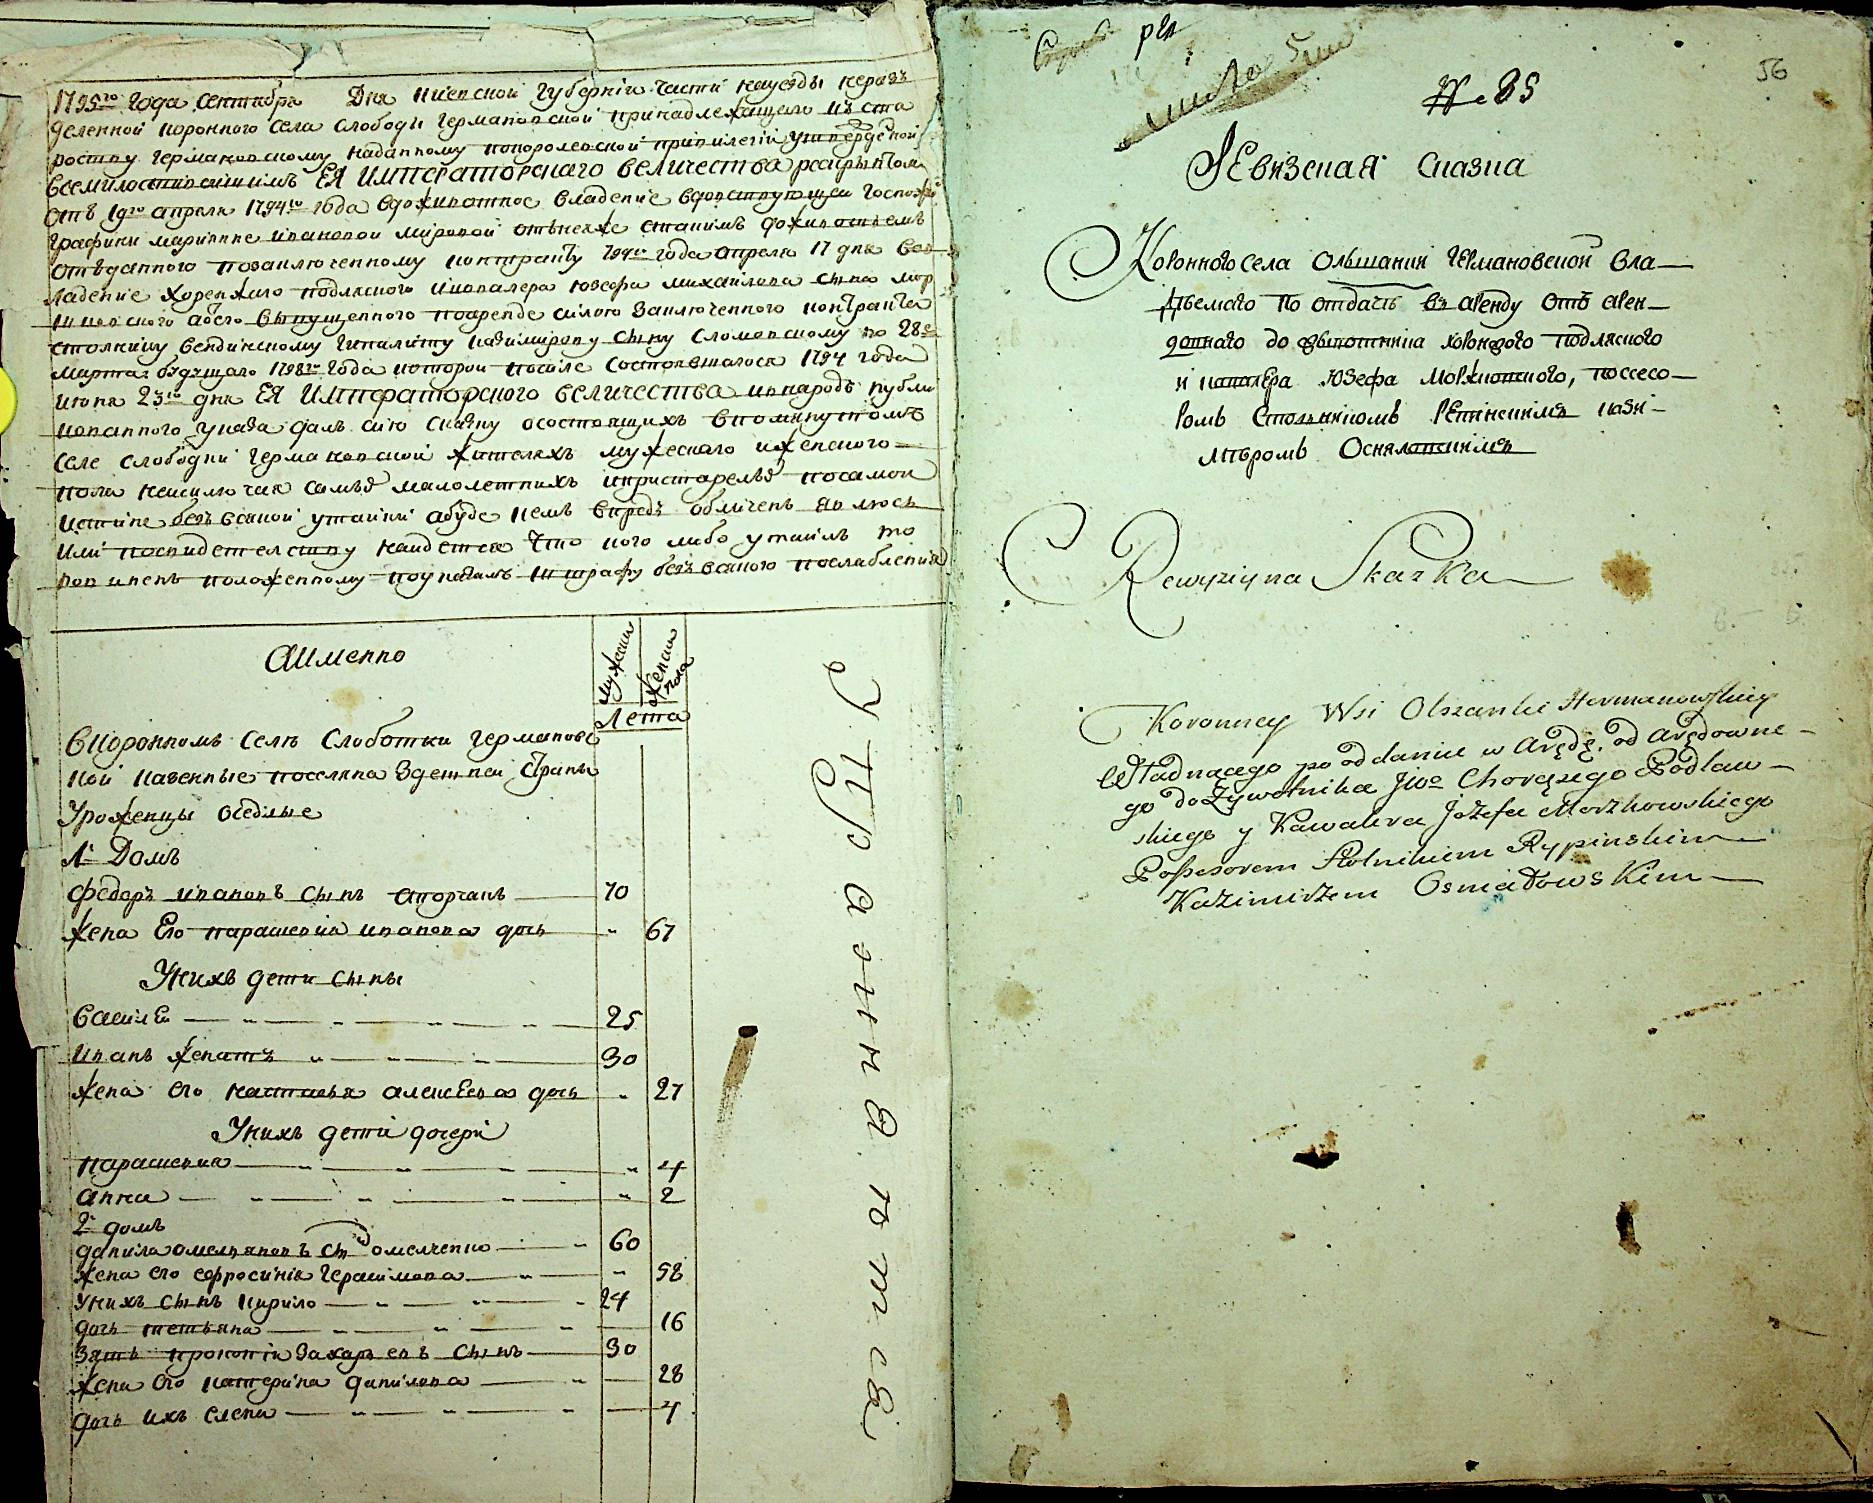 1795го года сентября Дня Киевской губернiи части науезды нераз
деленной коронного села слободы германовской принадлежащего къ ста
роству германовскому наданному по королевской привилегiи утвержденой
всемилостивейшимъ ЕЯ Императорскаго величества рескриптомъ
отъ 19го апреля 1794го года вдоживотное владенiе вдовствующей госпоже
графини марианне ивановой
отъ данного по заключенному контракту 794го года апреля 17 дня во
ладенiе хоренжаго подляского и кавалера юзефа михайлова сына мор
жковского абого выпущенного по аренде силою заключенного контракта
столнику казимирову сыну по 28е
марта будущаго 1798го года которой после состоявшагося 1794 года
июня 23го дня ЕЯ Императорского величества в народъ публи
кованного указа далъ сiю скаску осостоящихъ в помянутомъ
селе слободки германовской жителяхъ мужеского и женского
пола неисключая самыя малолетнихъ и престарелыя по самой
истине безъ всякой утайки а буде кемъ впредь обличенъ явлюсь
или по свидетелству найдется что кого либо утаилъ то
повиненъ положенному по указамъ штрафу безъ всякого послабленiя
Аимянно
мужеска
женска пола
Лета
В коронномъ селе слоботки германовс
кой казенные поселяна здешней страны
Уроженцы оседлые
1й Домъ
федоръ ивановъ сынъ 70
жена его парасковiя иванова дочь " 67
У нихъ дети сыны
василей 25
иванъ женатъ 30
жена его насталья алексеева дочь " 27
У нихъ дети дочери
парасковiя " 4
анна " 2
2й домъ
данило омельяновъ сынъ омелченко 60
жена его ефросинiя герасимова " 58
У нихъ сынъ кирило 24
дочь тетьяна 16
зять прокопiй захарьевъ сынъ 30
жена его катерина данилова 28
дочь ихъ елена 4
56
№ 85
Ревизская сказка
Коронного села Ольшанки Германовской вла—
дѣемаго по отдачѣ въ аренду отъ арен—
доннаго до животника хорондого подляского
и кавалера Юзефа Моржковского, поссесо—
ромъ Столникомъ Репинскимъ кази—
миромъ Осняловскимъ
Rewyziyna Skazka
Koronney Wsi Olszanki Hermanowskiey
Władnącego po oddaniu w Arędę, od Arędowne—
go do Zywotnika Jwo Chorążego Podlaw—
skiego y Kawalera Józefa Morzkowskiego
Possesorem Stolnikiem Rypinskim
Kazimirzem Osniałowskim